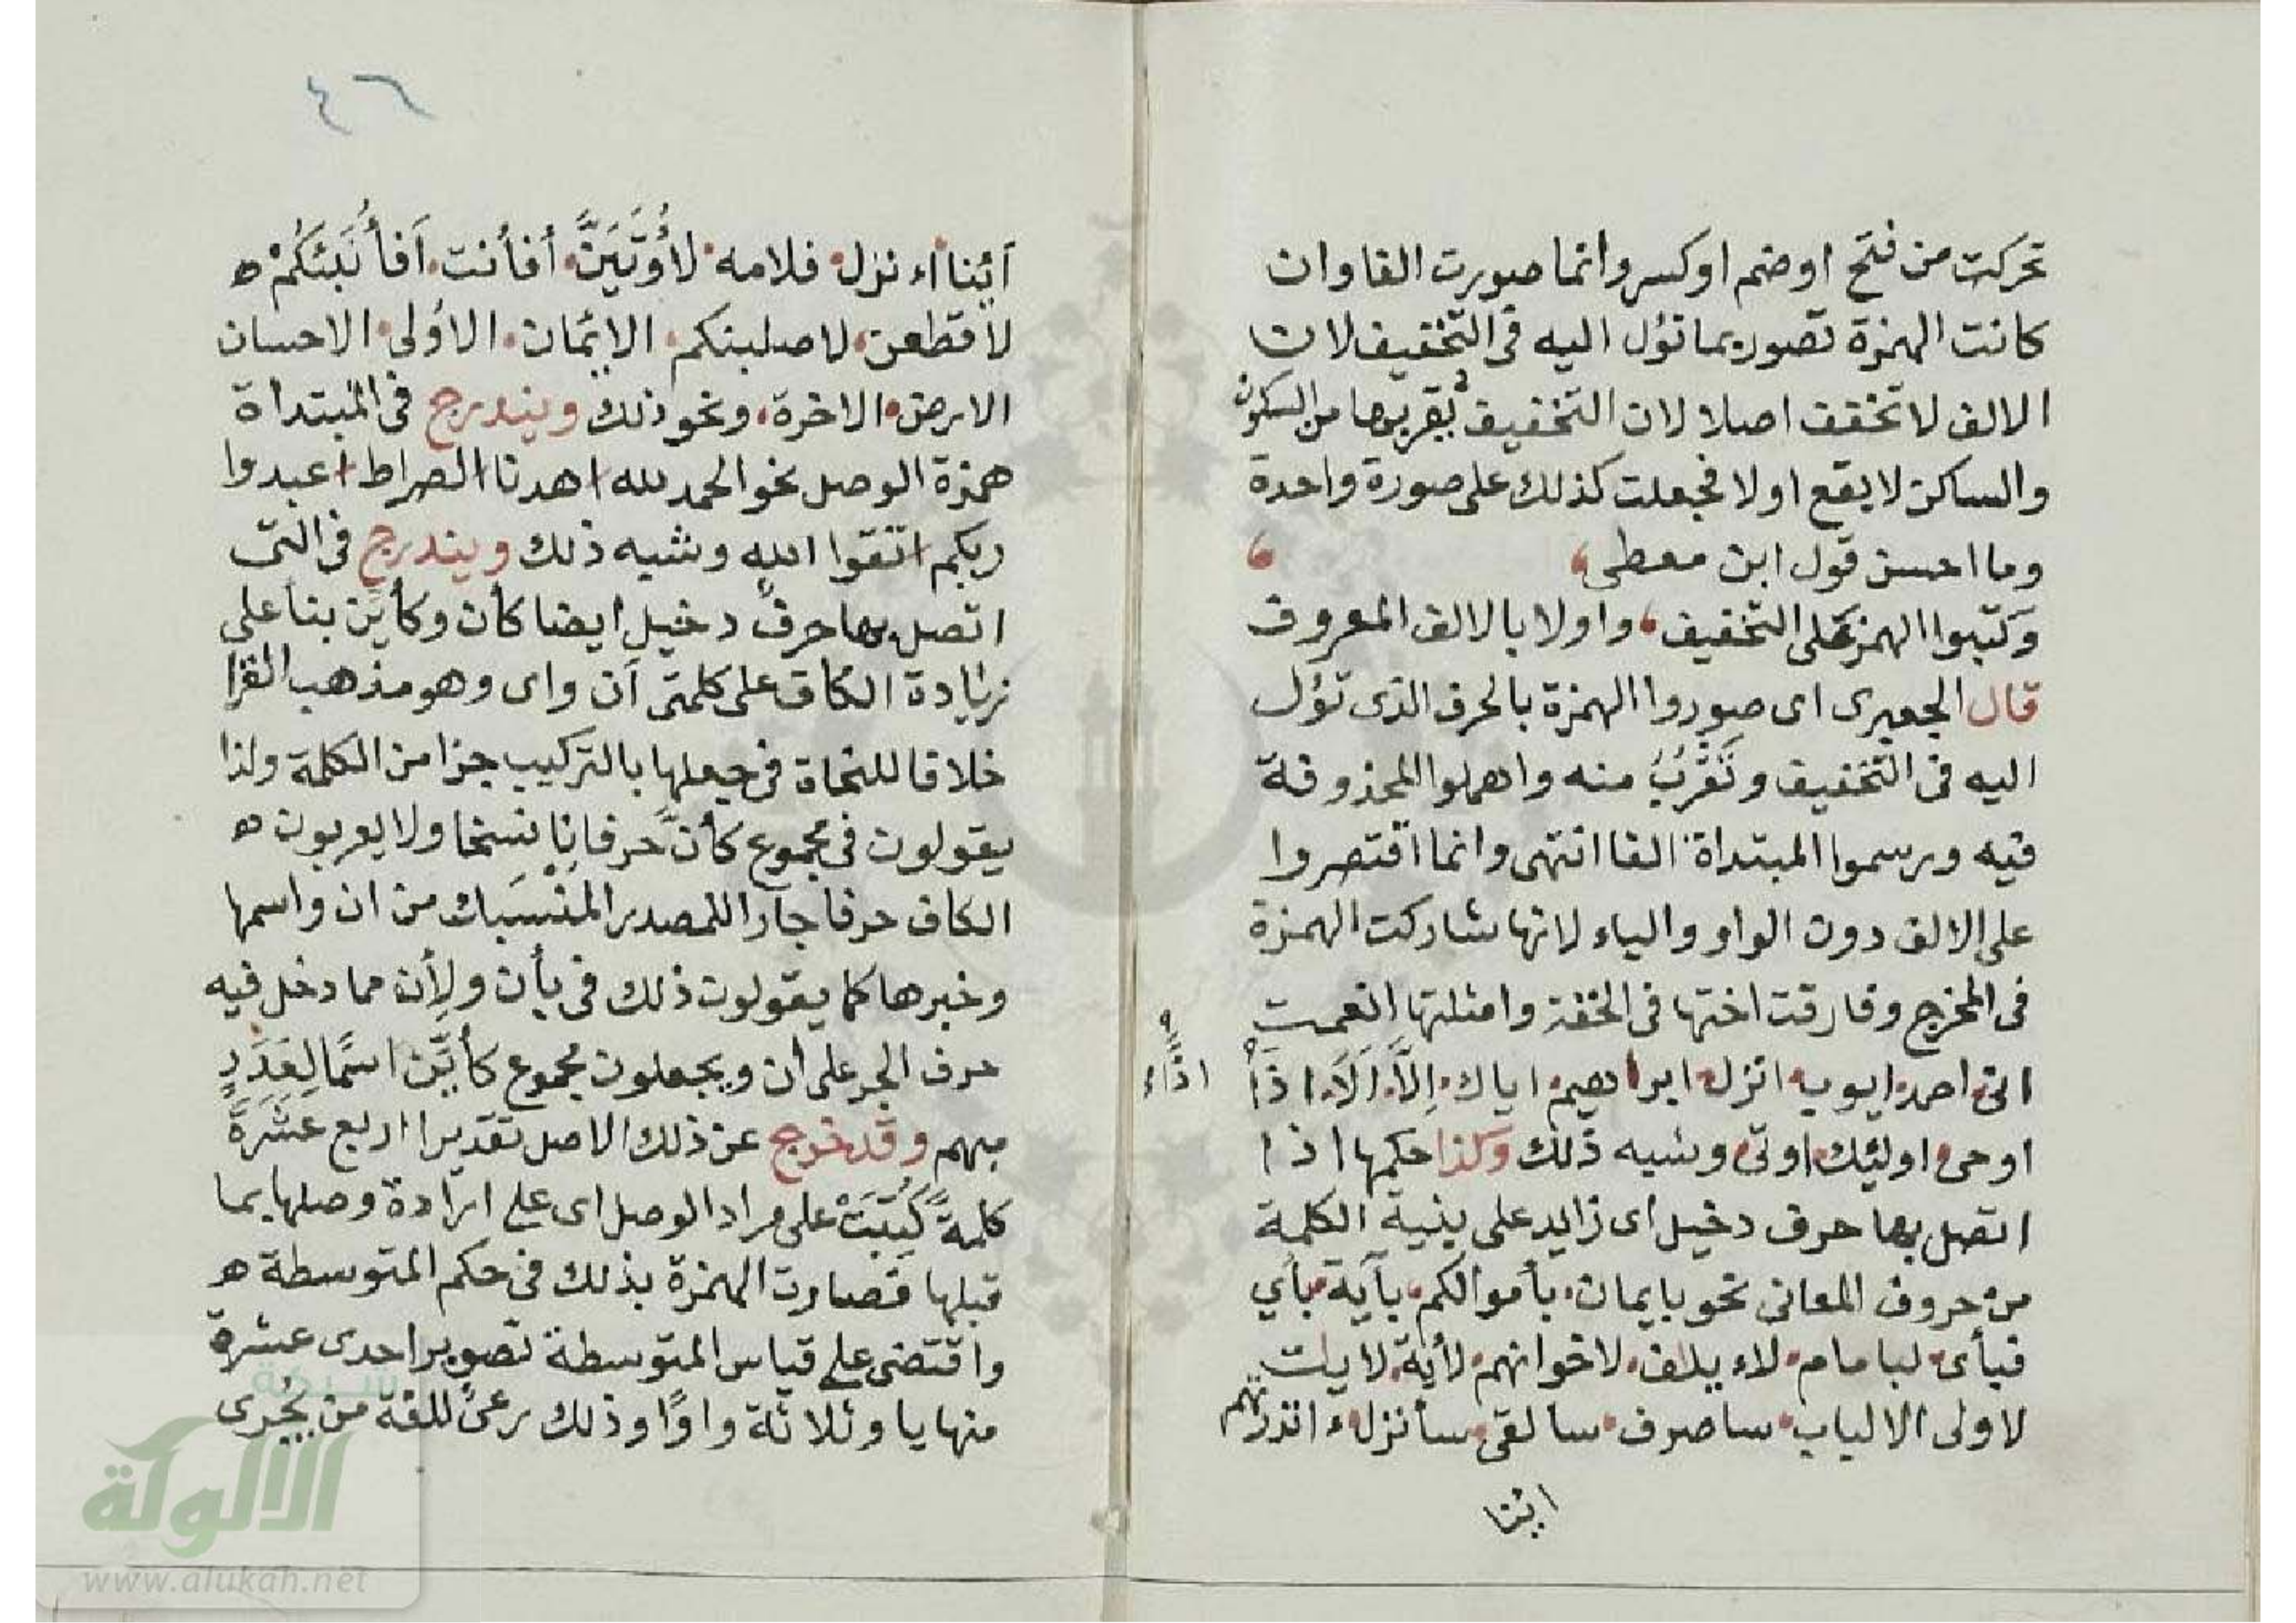 تحركت من فتح او ضم او كسر وانما صورت الفا وان
كانت الهمزة تصور بما تؤل اليه فى التخفيف لان
الالف لا تخفف اصلا لان التخفيف يقربها من السكون
والساكن لا يقع اولا فجعلت كذلك على صورة واحدة
وما احسن قول ابن معطى،
وَكتبوا الهمز على التخفيف، واولا بالالف المعروف
قال الجعبرى اى صوروا الهمزة بالحرف الذى تؤل
اليه فى التخفيف و تَقْرُبُ منه واهملوا المحذوفة
فيه ورسموا المبتداة الفا انتهى وانما اقتصروا
على الالف دون الواو والياء لانها شاركت الهمزة
فى المخرج وفارقت اختها فى الخفة وامثلتها انعمت
انى احمد ايوب انزل ابراهيم اياك اِلَّا اَلَا اذَا
اذًاء
اوحى اوليئك اوتى وشبه ذلك وكذا حكمها اذا
اتصل بها حرف دخيل اى زايد على بنية الكلمة
من حروف المعانى نحو بايمان بأموالكم بآية بأي
فبأى لبامام لاء يلاف لاخوانهم لأية لايلت
لاولى الالباب ساصرف سالقى سأنزل ءانذرتهم
ائنا
٤٦
اَئِنا اء نزل فلامه لأُوتَيَنَّ أفأنت اَفأُنَبِّئكُمْ ه
لأقطعن لاصلبنكم الايمان الاُولى الاحسان
الارض الاخرة، ونحو ذلك ويندرج فى المبتداة
همزة الوصل نحو الحمد لله اهدنا الصراط اعبدوا
ربكم اتقوا الله وشبه ذلك ويندرج فى التى
اتصل بها حرف دخيل ايضا كأن وكأين بنا على
زيادة الكاف على كلمتى اَن واى وهو مذهب القرا
خلافا للنحاة فى جعلها بالتركيب جزا من الكلمة ولذا
يقولون فى مجموع كأنّ حرفا ناسخا ولا يعربون ه
الكاف حرفا جارا للمصدر المنسَبك من ان واسمها
وخبرها كما يقولون ذلك فى بأن ولِأن مما دخل فيه
حرف الجر على أن ويجعلون مجموع كأيّن اسمًا لِعَدَدٍ
مبهم وقد خرج عن ذلك الاصل تقديرا اربع عشرَةَ
كلمةً كُتِبَتْ على مراد الوصل اى على ارادة وصلها بما
قبلها فصارت الهمزة بذلك فى حكم المتوسطة ه
واقتضى على قياس المتوسطة تصوير احدى عشرة
منها يا وثلاثة واوًا وذلك رعىً للغة من يُجرى
الألوكة
www.alukah.net